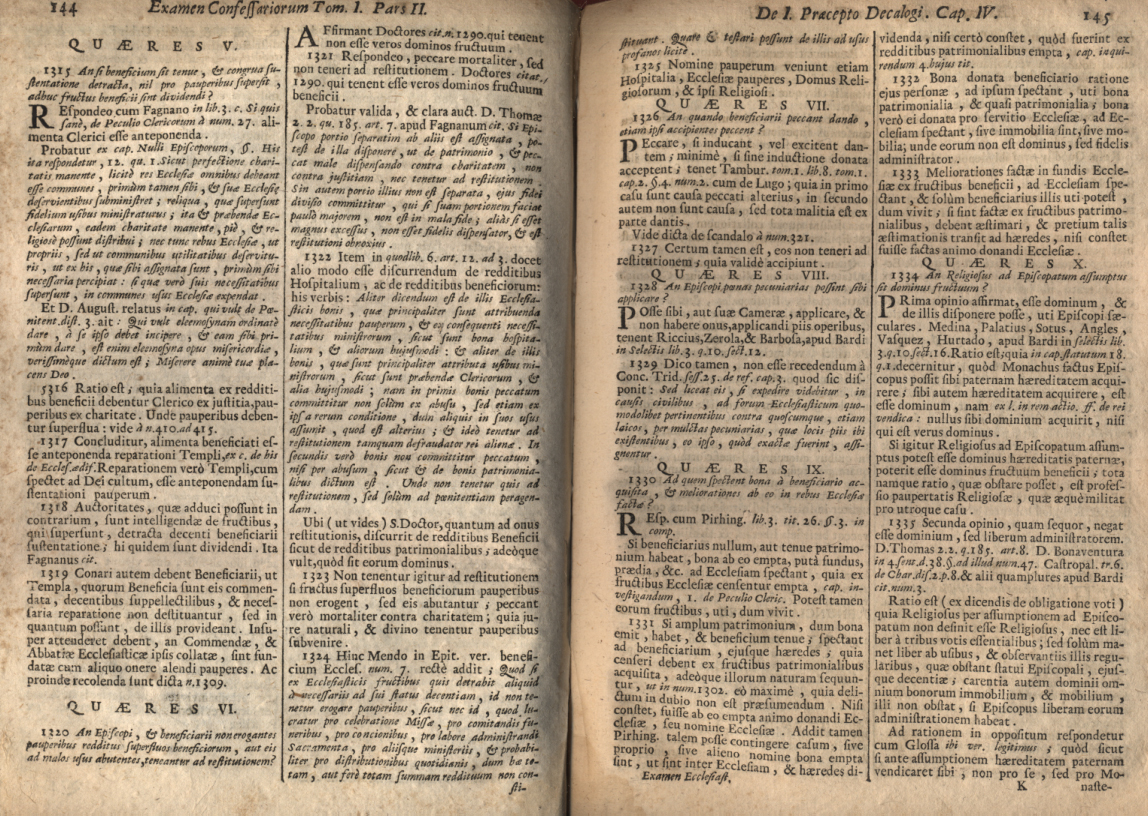 144 Examen Confessariorum Tom. I. Pars II.
QUÆRES V.
1315 An si beneficium sit tenue, & congrua su-
stentatione detracta, nil pro pauperibus supersit,
adhuc fructus beneficii sint dividendi?
REspondeo cum Fagnano in lib. 3. c. Si quis
sanè, de Peculio Clericorum à num. 27. ali-
menta Clerici esse anteponenda.
Probatur ex cap. Nulli Episcoporum, §. His
ita respondetur, 12. qu. 1. Sicut perfectione chari-
tatis manente, licitè res Ecclesiæ omnibus debeant
esse communes, primùm tamen sibi, & suæ Ecclesiæ
deservientibus subministret; reliqua, quæ supersunt
fidelium usibus ministraturus; ita & præbendæ Ec-
clesiarum, eadem charitate manente, piè, & re-
ligiosè possunt distribui; nec tunc rebus Ecclesiæ, ut
propriis, sed ut communibus utilitatibus deservitu-
ris, ut ex his, quæ sibi assignata sunt, primùm sibi
necessaria percipiat: si qua verò suis necessitatibus
supersunt, in communes usus Ecclesiæ expendat.
Et D. August. relatus in cap. qui vult de Pœ-
nitent. dist. 3. ait: Qui vult eleemosynam ordinatè
dare, à se ipso debet incipere, & eam sibi pri-
mùm dare, est enim eleemosyna opus misericordiæ,
verissimèque dictum est; Miserere animæ tuæ pla-
cens Deo.
5316 Ratio est; quia alimenta ex redditi-
bus beneficii debentur Clerico ex justitia, pau-
peribus ex charitate. Unde pauperibus deben-
tur superflua: vide à n. 410. ad 415.
1317 Concluditur, alimenta beneficiati es-
se anteponenda reparationi Templi, ex c. de his
de Eccles. ædif. Reparationem verò Templi, cum
spectet ad Dei cultum, esse anteponendam su-
stentationi pauperum.
1318 Auctoritates, quæ adduci possunt in
contrarium, sunt intelligendæ de fructibus,
qui supersunt, detracta decenti beneficiarii
sustentatione; hi quidem sunt dividendi. Ita
Fagnanus cit.
1319 Conari autem debent Beneficiarii, ut
Templa, quorum Beneficia sunt eis commen-
data, decentibus suppellectilibus, & neces-
saria reparatione non destituantur, sed in
quantum possunt, de illis provideant. Insu-
per attenderet debent, an Commendæ, &
Abbatiæ Ecclesiasticæ ipsis collatæ, sint fun-
datæ cum aliquo onere alendi pauperes. Ac
proinde recolenda sunt dicta n. 1309.
QUÆRES VI.
1320 An Episcopi, & beneficiarii non erogantes
pauperibus redditus superfluos beneficiorum, aut eis
ad malos usus abutentes, teneantur ad restitutionem?
AFfirmant Doctores cit. n. 1290. qui tenent
non esse veros dominos fructuum.
1321 Respondeo, peccare mortaliter, sed
non teneri ad restitutionem. Doctores citat.
1290. qui tenent esse veros dominos fructuum
beneficii.
Probatur valida, & clara auct. D. Thomæ
2. 2. qu. 185. art. 7. apud Fagnanum cit. Si Epi-
scopo portio separatim ab aliis est assignata, po-
test de illa disponere, ut de patrimonio, & pec-
cat male dispensando contra charitatem, non
contra justitiam, nec tenetur ad restitutionem.
Sin autem portio illius non est separata, ejus fidei
divisio committitur, qui si suam portionem faciat
paulò majorem, non est in mala fide; aliàs si esset
magnus excessus, non esset fidelis dispensator, & est
restitutioni obnoxius.
1322 Item in quodlib. 6. art. 12. ad 3. docet
alio modo esse discurrendum de redditibus
Hospitalium, ac de redditibus beneficiorum:
his verbis: Aliter dicendum est de illis Ecclesia-
sticis bonis, quæ principaliter sunt attribuenda
necessitatibus pauperum, & ex consequenti necessi-
tatibus ministrorum, sicut sunt bona hospita-
lium, & aliorum hujusmodi: & aliter de illis
bonis, quæ sunt principaliter attributa usibus mi-
nistrorum, sicut sunt præbendæ Clericorum, &
alia hujusmodi; nam in primis bonis peccatum
committitur non solùm ex abusu, sed etiam ex
ipsa rerum conditione, dum aliquis in suos usus
assumit, quod est alterius; & ideò tenetur ad
restitutionem tamquam defraudator rei alienæ. In
secundis verò bonis non committitur peccatum,
nisi per abusum, sicut & de bonis patrimonia-
libus dictum est. Unde non tenetur quis ad
restitutionem, sed solùm ad pœnitentiam peragen-
dam.
Ubi (ut vides) S. Doctor, quantum ad onus
restitutionis, discurrit de redditibus Beneficii
sicut de redditibus patrimonialibus; adeòque
vult, quòd sit eorum dominus.
1323 Non tenentur igitur ad restitutionem
si fructus superfluos beneficiorum pauperibus
non erogent, sed eis abutantur; peccant
verò mortaliter contra charitatem; quia ju-
re naturali, & divino tenentur pauperibus
subvenire.
1324 Hinc Mendo in Epit. ver. benefi-
cium Eccles. num. 7. rectè addit; Quod si
ex Ecclesiasticis fructibus quis detrabit aliquid
à necessariis ad sui status decentiam, id non te-
netur erogare pauperibus, sicut nec id, quod lu-
cratur pro celebratione Missæ, pro comitandis fu-
neribus, pro concionibus, pro labore administrandi
Sacramenta, pro aliisque ministeriis, & probabi-
liter pro distributionibus quotidianis, dum hæ to-
tam, aut ferè totam summam reddituum non con-
sti-
De I. Præcepto Decalogi. Cap. IV. 145
stituant. Quare & testari possunt de illis ad usus
profanos licitè.
1325 Nomine pauperum veniunt etiam
Hospitalia, Ecclesiæ pauperes, Domus Reli-
giosorum, & ipsi Religiosi.
QUÆRES VII.
1326 An quando beneficiarii peccant dando,
etiam ipsi accipientes peccent?
PEccare, si inducant, vel excitent dan-
tem; minimè, si sine inductione donata
acceptent; tenet Tambur. tom. 1. lib. 8. tom. 1.
cap. 2. §. 4. num. 2. cum de Lugo; quia in primo
casu sunt causa peccati alterius, in secundo
autem non sunt causa, sed tota malitia est ex
parte dantis.
Vide dicta de scandalo à num. 321.
1327 Certum tamen est, eos non teneri ad
restitutionem; quia validè accipiunt.
QUÆRES VIII.
1328 An Episcopi pœnas pecuniarias possint sibi
applicare?
POsse sibi, aut suæ Cameræ, applicare, &
non habere onus, applicandi piis operibus,
tenent Riccius, Zerola, & Barbosa, apud Bardi
in Selectis lib. 3. q. 10. sect. 12.
1329 Dico tamen, non esse recedendum à
Conc. Trid. sess. 25. de ref. cap. 3. quod sic dis-
ponit: Sed liceat eis, si expedire videbitur, in
causis civilibus, ad forum Ecclesiasticum quo-
modolibet pertinentibus contra quoscumque, etiam
laicos, per mulctas pecuniarias, quæ locis piis ibi
existentibus, eo ipso, quod exactæ fuerint, assi-
gnentur.
QUÆRES IX.
1330 Ad quem spectent bona à beneficiario ac-
quisita, & meliorationes ab eo in rebus Ecclesiæ
factæ?
REsp. cum Pirhing. lib. 3. tit. 26. §. 3. in
comp.
Si beneficiarius nullum, aut tenue patrimo-
nium habeat, bona ab eo empta, putà fundus,
prædia, &c. ad Ecclesiam spectant, quia ex
fructibus Ecclesiæ censentur empta, cap. in-
vestigandum, 1. de Peculio Cleric. Potest tamen
eorum fructibus, uti, dum vivit.
1331 Si amplum patrimonium, dum bona
emit, habet, & beneficium tenue; spectant
ad beneficiarium, ejusque hæredes; quia
censeri debent ex fructibus patrimonialibus
acquisita, adeòque illorum naturam sequun-
tur, ut in num. 1302. eò maximè, quia deli-
ctum in dubio non est præsumendum. Nisi
constet, fuisse ab eo empta animo donandi Ec-
clesiæ, seu nomine Ecclesiæ. Addit tamen
Pirhing. talem posse contingere casum, sive
proprio, sive alieno nomine bona empta
sint, ut sint inter Ecclesiam, & hæredes di-
Examen Ecclesiast.
videnda, nisi certò constet, quòd fuerint ex
redditibus patrimonialibus empta, cap. inqui-
rendum 4. hujus tit.
1332 Bona donata beneficiario ratione
ejus personæ, ad ipsum spectant, uti bona
patrimonialia, & quasi patrimonialia; bona
verò ei donata pro servitio Ecclesiæ, ad Ec-
clesiam spectant, sive immobilia sint, sive mo-
bilia; unde eorum non est dominus, sed fidelis
administrator.
1333 Meliorationes factæ in fundis Eccle-
siæ ex fructibus beneficii, ad Ecclesiam spe-
ctant, & solùm beneficiarius illis uti potest,
dum vivit; si sint factæ ex fructibus patrimo-
nialibus, debent æstimari, & pretium talis
æstimationis transit ad hæredes, nisi constet
fuisse factas animo donandi Ecclesiæ.
QUÆRES X.
1334 An Religiosus ad Episcopatum assumptus
sit dominus fructuum?
PRima opinio affirmat, esse dominum, &
de illis disponere posse, uti Episcopi sæ-
culares. Medina, Palatius, Sotus, Angles,
Vasquez, Hurtado, apud Bardi in selectis lib.
3. q. 10. sect. 16. Ratio est; quia in cap. statutum 18.
q. 1. decernitur, quòd Monachus factus Epis-
copus possit sibi paternam hæreditatem acqui-
rere; sibi autem hæreditatem acquirere, est
esse dominum, nam ex l. in rem actio. ff. de rei
vendica: nullus sibi dominium acquirit, nisi
qui est verus dominus.
Si igitur Religiosus ad Episcopatum assum-
ptus potest esse dominus hæreditatis paternæ,
poterit esse dominus fructuum beneficii; tota
namque ratio, quæ obstare posset, est profes-
sio paupertatis Religiosæ, quæ æquè militat
pro utroque casu.
1335 Secunda opinio, quam sequor, negat
esse dominium, sed liberum administratorem.
D. Thomas 2. 2. q. 185. art. 8. D. Bonaventura
in 4. sent. d. 38. §. ad illud num. 47. Castropal. tr. 6.
de Char. dis. 2. p. 8. & alii quamplures apud Bardi
cit. num. 3.
Ratio est (ex dicendis de obligatione voti)
quia Religiosus per assumptionem ad Episco-
patum non desinit esse Religiosus, nec est li-
ber à tribus votis essentialibus; sed solùm ma-
net liber ab usibus, & observantiis illis regu-
laribus, quæ obstant statui Episcopali, ejus-
que decentiæ; carentia autem dominii om-
nium bonorum immobilium, & mobilium,
illi non obstat, si Episcopus liberam eorum
administrationem habeat.
Ad rationem in oppositum respondetur
cum Glossa ibi ver. legitimus; quòd sicut
si ante assumptionem hæreditatem paternam
vendicaret sibi, non pro se, sed pro Mo-
K naste-